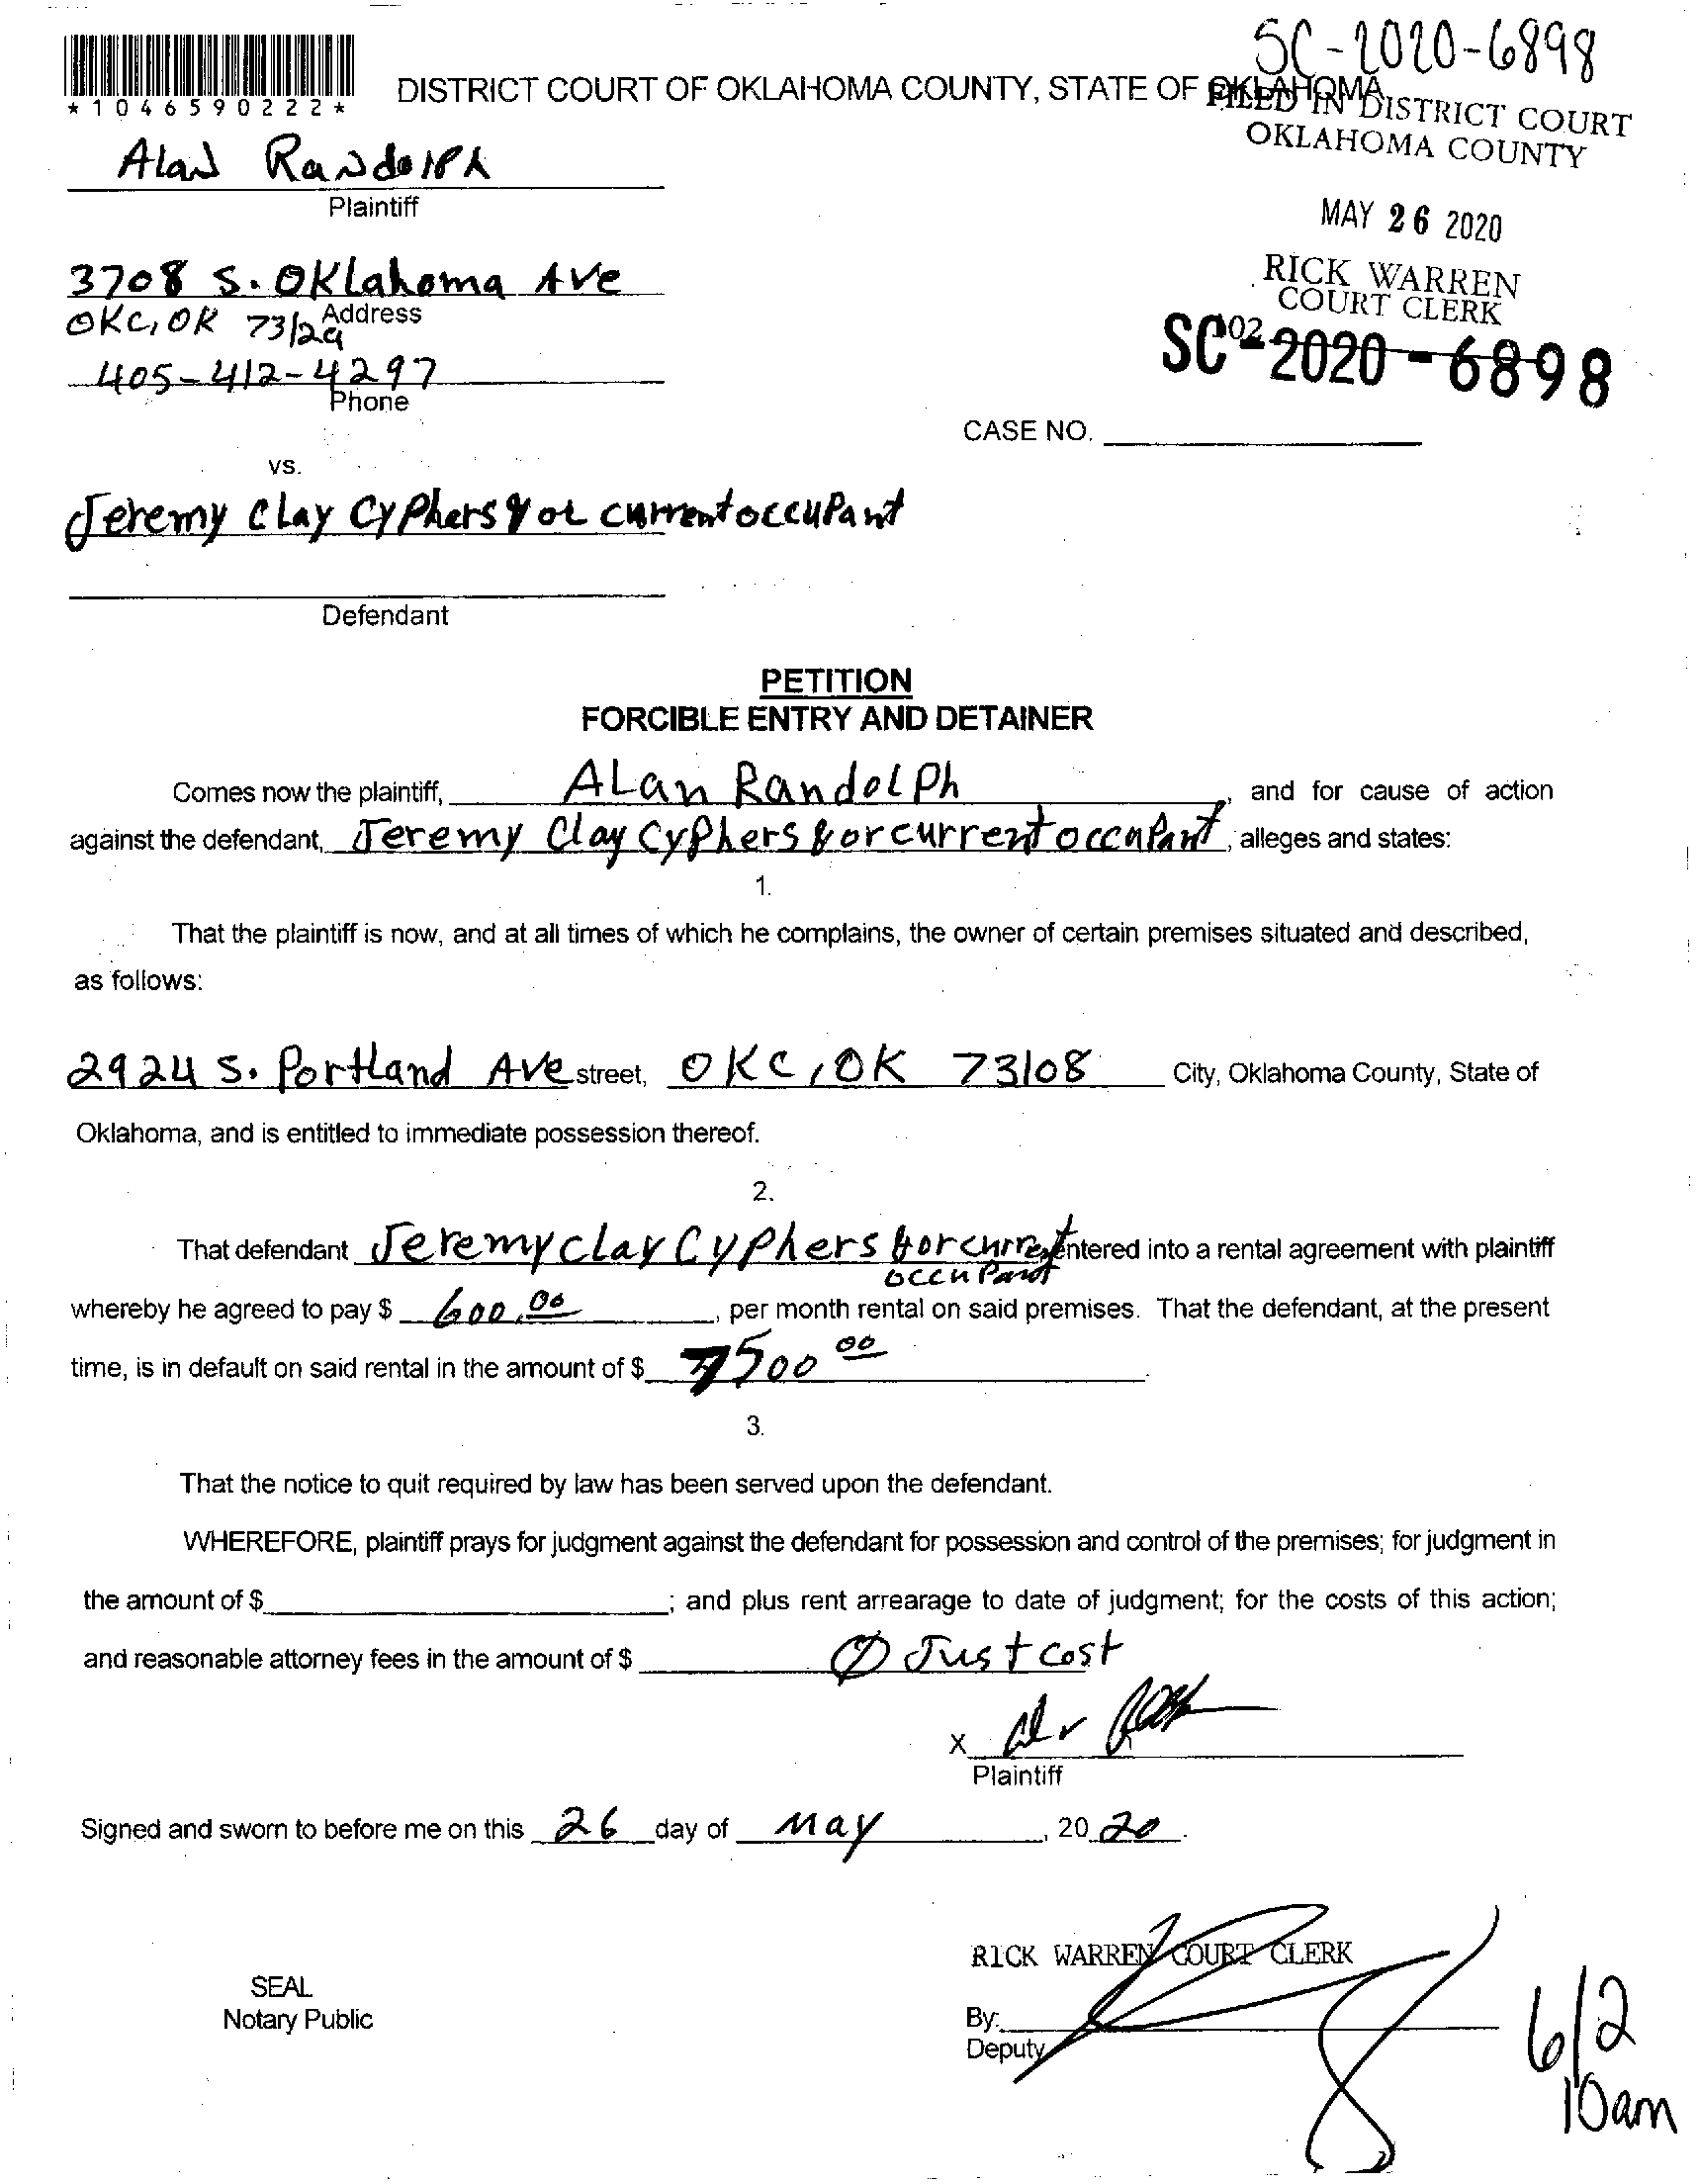 SC-2020-6898
*1046590222*
DISTRICT COURT OF OKLAHOMA COUNTY, STATE OF OKLAHOMA
FILED IN DISTRICT COURT
OKLAHOMA COUNTY
Alan Randolph
Plaintiff
MAY 26 2020
3708 S. Oklahoma Ave
Address
OKC, OK 73129
RICK WARREN
COURT CLERK
02
SC-2020-6898
405-412-4297
Phone
CASE NO.
vs.
Jeremy Clay Cyphers & or current occupant
Defendant
PETITION
FORCIBLE ENTRY AND DETAINER
Comes now the plaintiff, Alan Randolph, and for cause of action
against the defendant, Jeremy Clay Cyphers & or current occupant, alleges and states:
1.
That the plaintiff is now, and at all times of which he complains, the owner of certain premises situated and described,
as follows:
2924 S. Portland Ave street, OKC, OK 73108 City, Oklahoma County, State of
Oklahoma, and is entitled to immediate possession thereof.
2.
That defendant Jeremy Clay Cyphers & or current occupant entered into a rental agreement with plaintiff
whereby he agreed to pay $ 600.00, per month rental on said premises. That the defendant, at the present
time, is in default on said rental in the amount of $ 7500 00
3.
That the notice to quit required by law has been served upon the defendant.
WHEREFORE, plaintiff prays for judgment against the defendant for possession and control of the premises; for judgment in
the amount of $ ; and plus rent arrearage to date of judgment; for the costs of this action;
and reasonable attorney fees in the amount of $ Ø Just cost
X
Plaintiff
Signed and sworn to before me on this 26 day of May, 20 20.
RICK WARREN COURT CLERK
SEAL
Notary Public
By:
Deputy
6/2
10am